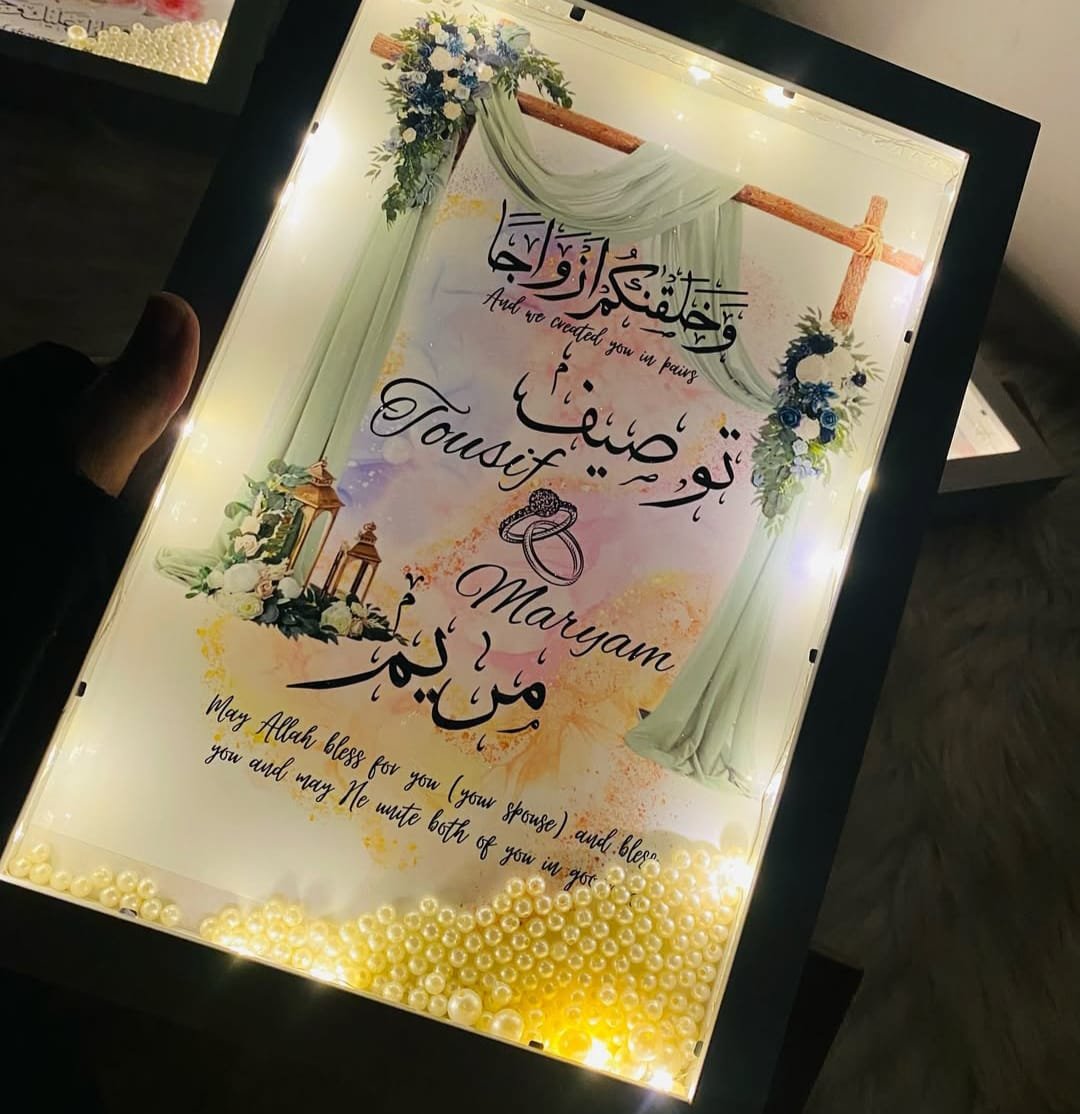 وَخَلَقْنَكُمْ أَزْوَاجًا
And we created you in pairs
توصيف
Tousif
Maryam
مريم
May Allah bless for you (your spouse) and bless
you and may He unite both of you in